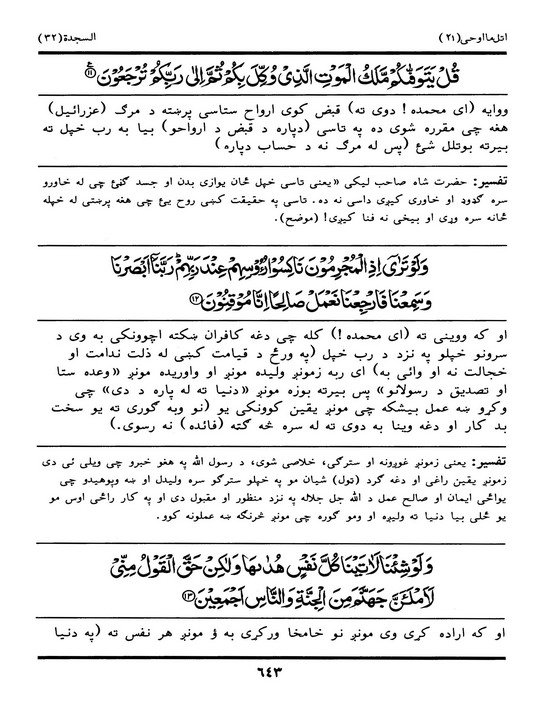 اتل ما اوحی (۲۱)
السجدة (۳۲)
قُلْ يَتَوَفّٰىكُمْ مَّلَكُ الْمَوْتِ الَّذِىْ وُكِّلَ بِكُمْ ثُمَّ اِلٰى رَبِّكُمْ تُرْجَعُوْنَ ﴿۱۱﴾
ووایه (ای محمده! دوی ته) قبض کوی ارواح ستاسی پرښته د مرګ (عزرائیل)
هغه چی مقرره شوی ده په تاسی (دپاره د قبض د ارواحو) بیا به رب خپل ته
بیرته بوتلل شئ (پس له مرګ نه د حساب دپاره)
تفسیر: حضرت شاه صاحب لیکی «یعنی تاسی خپل ځان یوازی بدن او جسد ګڼئ چی له خاورو
سره ګډوډ او خاوری کیږی داسی نه ده. تاسی په حقیقت کښی روح یئ چی هغه پرښتی له خپله
ځانه سره وړی او بیخی نه فنا کیږی! (موضح).
وَلَوْ تَرٰٓى اِذِ الْمُجْرِمُوْنَ نَاكِسُوْا رُءُوْسِهِمْ عِنْدَ رَبِّهِمْ ۗ رَبَّنَآ اَبْصَرْنَا
وَسَمِعْنَا فَارْجِعْنَا نَعْمَلْ صَالِحًا اِنَّا مُوْقِنُوْنَ ﴿۱۲﴾
او که ووینی ته (ای محمده!) کله چی دغه کافران ښکته اچوونکی به وی د
سرونو خپلو په نزد د رب خپل (په ورځ د قیامت کښی له ذلت ندامت او
خجالت نه او وائی به) ای ربه زمونږ ولیده مونږ او واوریده مونږ «وعده ستا
او تصدیق د رسولانو» پس بیرته بوزه مونږ «دنیا ته له پاره د دی» چی
وکړو ښه عمل بیشکه چی مونږ یقین کوونکی یو (نو وبه ګوری ته یو سخت
بد کار او دغه وینا به دوی ته له سره څه ګټه (فائده) نه رسوی.)
تفسیر: یعنی زمونږ غوږونه او سترګی، خلاصی شوی، د رسول الله په هغو خبرو چی ویلی ئی دی
زمونږ یقین راغی او دغه ګرد (ټول) شیان مو په خپلو سترګو سره ولیدل او ښه وپوهیدو چی
یوائی ایمان او صالح عمل د الله جل جلاله په نزد منظور او مقبول دی او په کار راځی اوس مو
یو ځلی بیا دنیا ته ولیږه او ومو ګوره چی مونږ څرنګه ښه عملونه کوو.
وَلَوْ شِئْنَا لَاٰتَيْنَا كُلَّ نَفْسٍ هُدٰىهَا وَلٰكِنْ حَقَّ الْقَوْلُ مِنِّىْ
لَاَمْلَـَٔنَّ جَهَنَّمَ مِنَ الْجِنَّةِ وَالنَّاسِ اَجْمَعِيْنَ ﴿۱۳﴾
او که اراده کړی وی مونږ نو خامخا ورکړی به ؤ مونږ هر نفس ته (په دنیا
۶۴۳